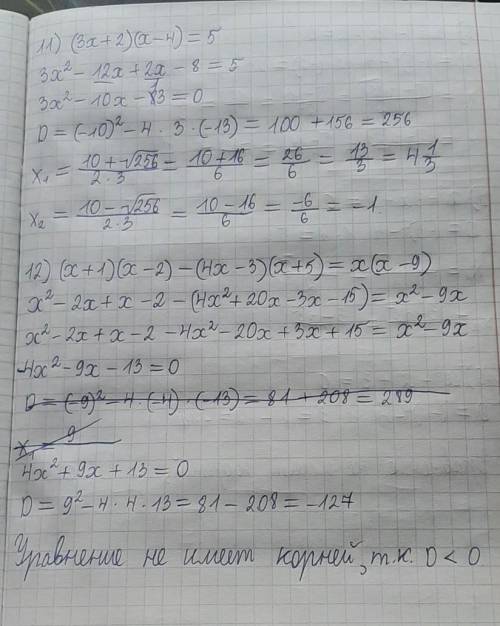 11) (3x+2)(x-4) = 5
3x² - 12x + 2x - 8 = 5
3x² - 10x - 13 = 0
D = (-10)² - 4 · 3 · (-13) = 100 + 156 = 256
x₁ = (10+√256)/(2·3) = (10+16)/6 = 26/6 = 13/3 = 4 1/3
x₂ = (10-√256)/(2·3) = (10-16)/6 = -6/6 = -1
12) (x+1)(x-2) - (4x-3)(x+5) = x(x-9)
x² - 2x + x - 2 - (4x² + 20x - 3x - 15) = x² - 9x
x² - 2x + x - 2 - 4x² - 20x + 3x + 15 = x² - 9x
-4x² - 9x - 13 = 0
D = (-9)² - 4 · (-4) · (-13) = 81 + 208 = 289
x₁ = 9
4x² + 9x + 13 = 0
D = 9² - 4 · 4 · 13 = 81 - 208 = -127
Уравнение не имеет корней, т.к. D < 0